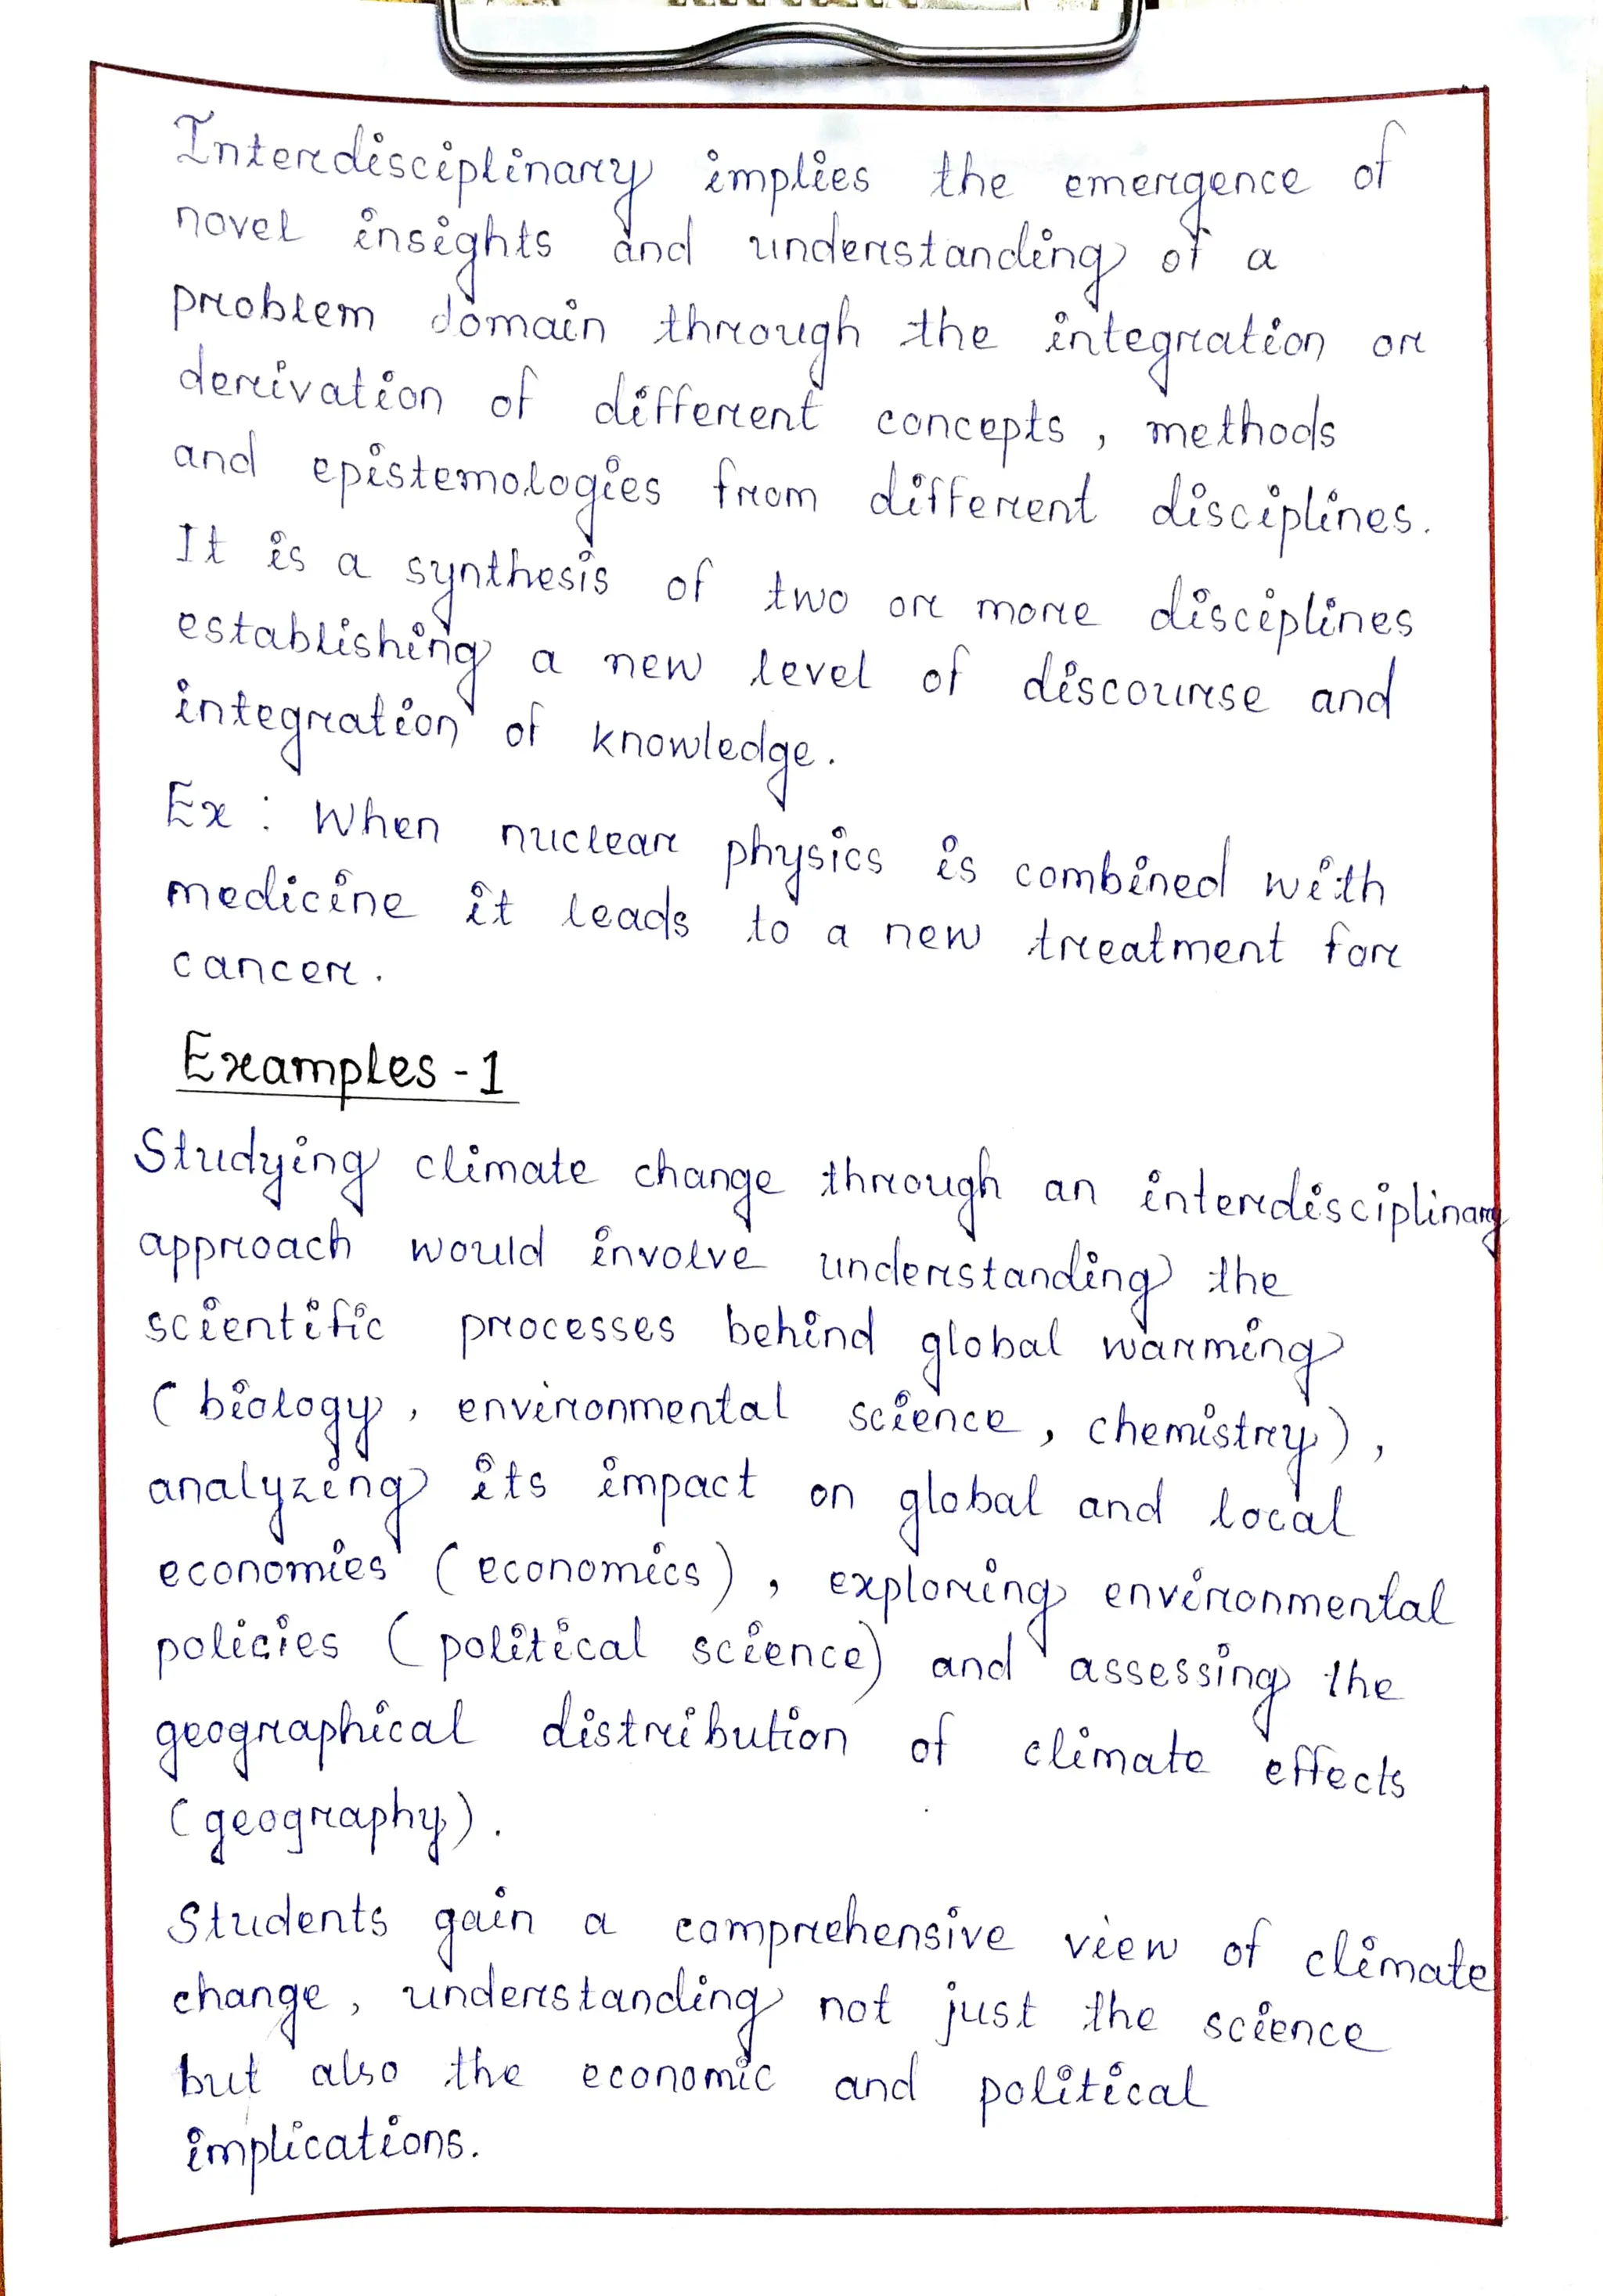 Interdisciplinary implies the emergence of
novel insights and understanding of a
problem domain through the integration or
derivation of different concepts, methods
and epistemologies from different disciplines.
It is a synthesis of two or more disciplines
establishing a new level of discourse and
integration of knowledge.
Ex : When nuclear physics is combined with
medicine it leads to a new treatment for
cancer.
Examples - 1
Studying climate change through an interdisciplinary
approach would involve understanding the
scientific processes behind global warming
(biology, environmental science, chemistry),
analyzing its impact on global and local
economies (economics), exploring environmental
policies (political science) and assessing the
geographical distribution of climate effects
(geography).
Students gain a comprehensive view of climate
change, understanding not just the science
but also the economic and political
implications.